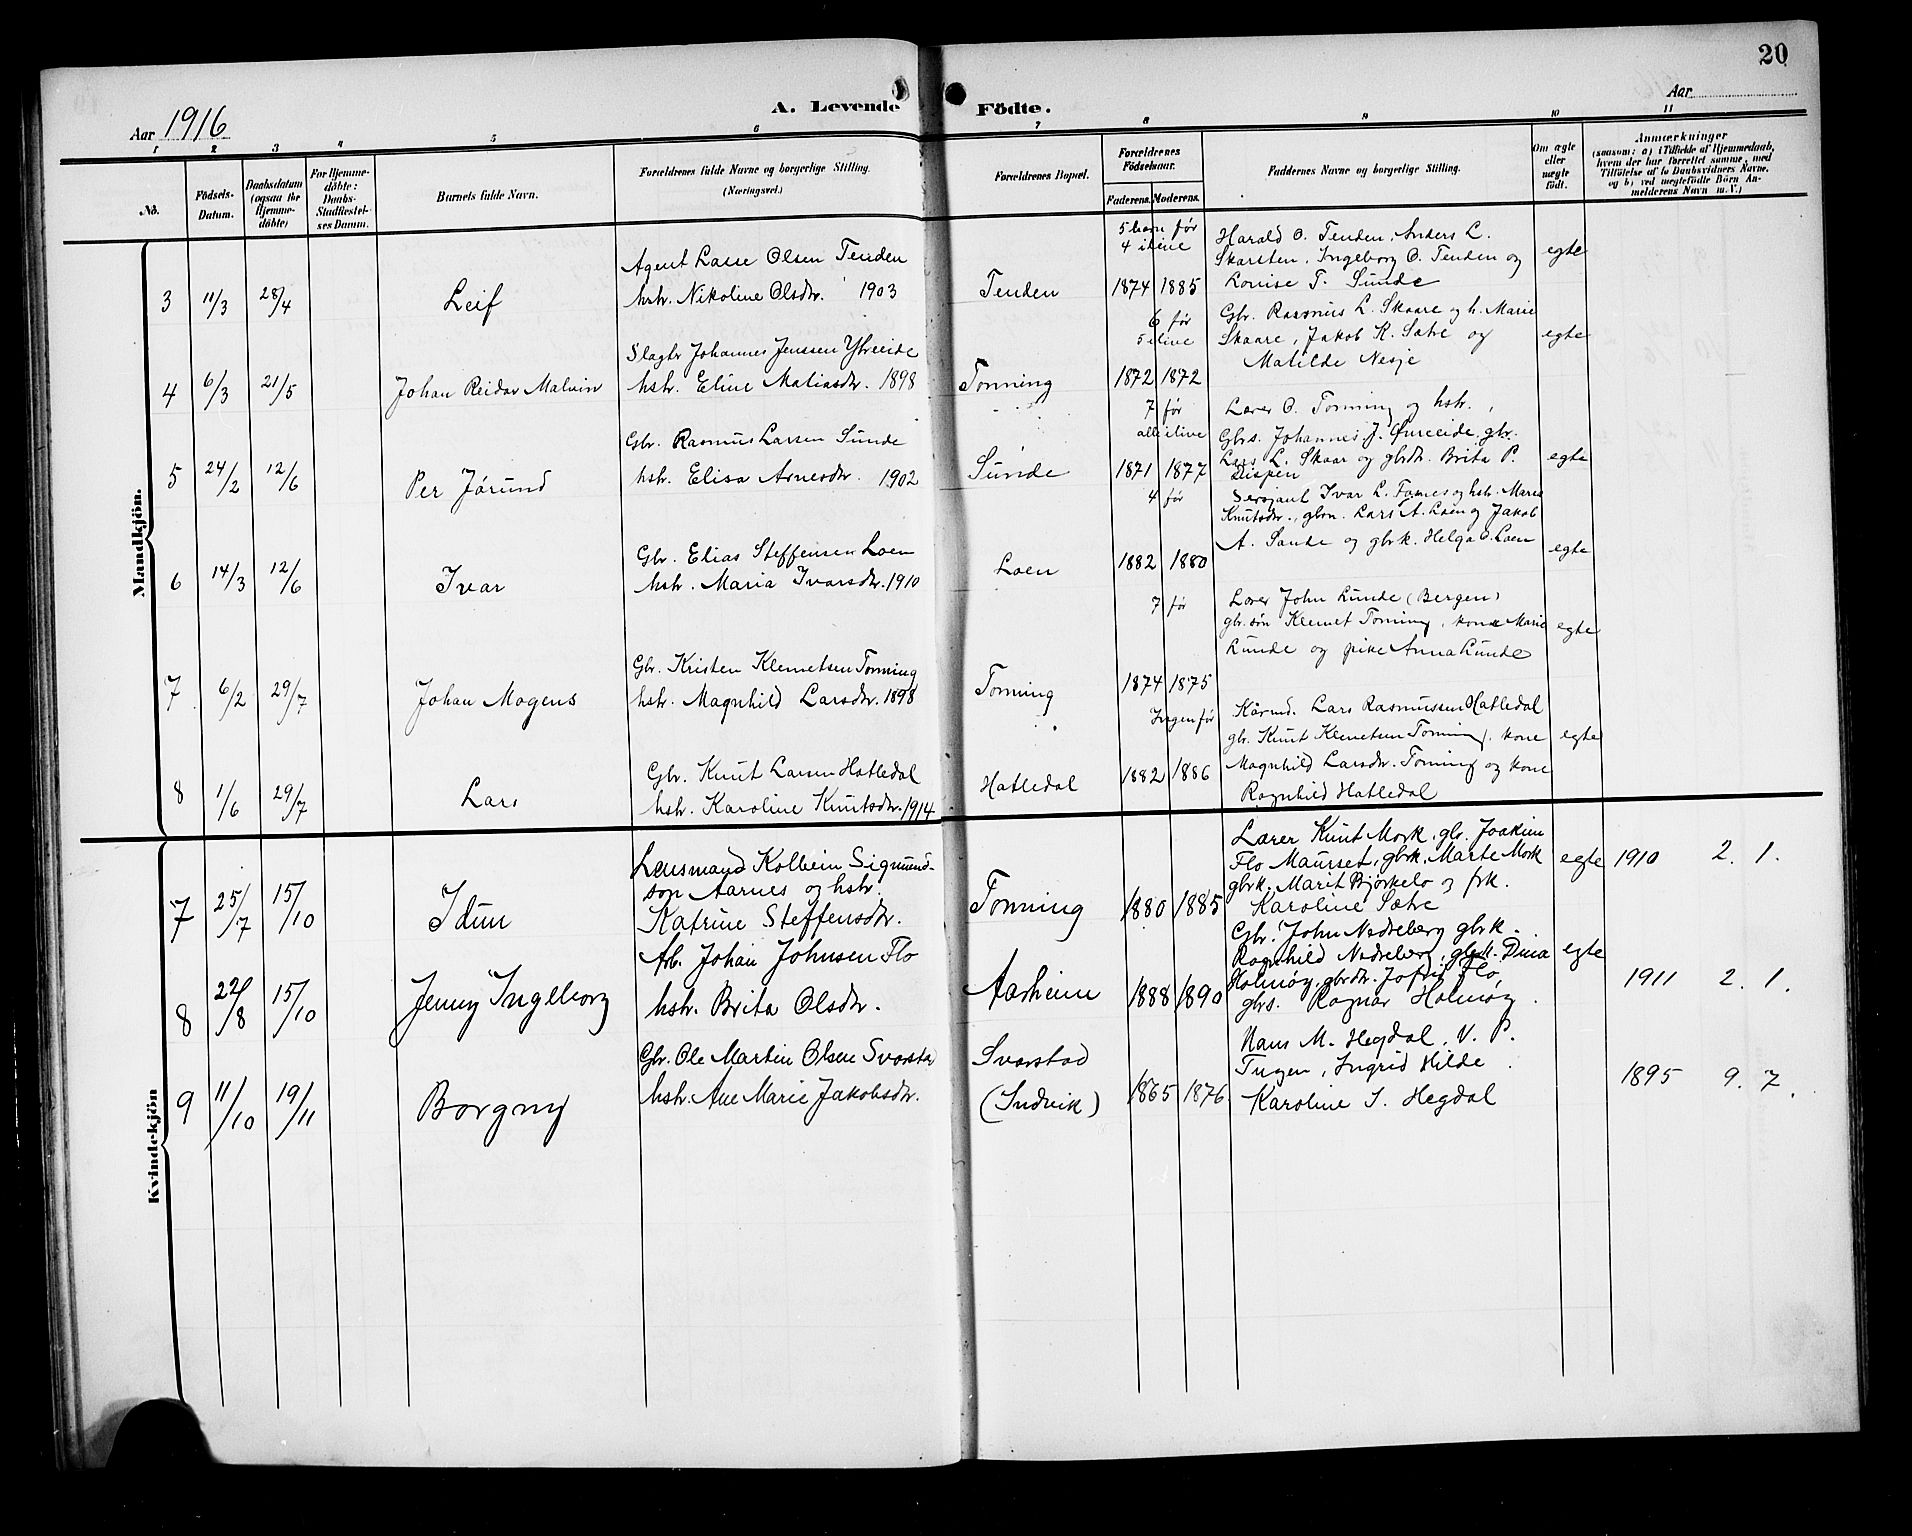 20
Aar 1916
A. Levende Födte.
Aar
1 2 3 4 5 6 7 8 9 10 11
No.
Födsels-Datum.
Daabsdatum (ogsaa for Hjemmedöbte)
For Hjemmedöbte: Daabs-Stadfæstelses Datum.
Barnets fulde Navn.
Forældrenes fulde Navne og borgerlige Stilling. (Næringsvei.)
Forældrenes Bopæl.
Forældrenes Födselsaar.
Faderens. Moderens.
Faddernes Navne og borgerlige Stilling.
Om ægte eller uægte födt.
Anmærkninger
(saasom: a) i Tilfælde af Hjemmedaab, hvem der har forrettet samme, med Tilföielse af to Daabsvidners Navne, og b) ved uægtefödte Börn Anmelderens Navn m. V.)
Mandkjön.
3 11/3 28/4 Leif
Agent Lasse Olsen Tenden
hstr. Nikoline Olsdtr. 1903
Tenden
5 barn før
4 ilive
1874 1885
Harald O. Tenden, Anders L.
Skarsten, Ingeborg O. Tenden og
Louise T. Sunde
egte
4 6/3 21/5 Johan Reidar Malvin
Slagtr Johannes Jenssen Ybreeide
hstr. Eline Matiasdtr. 1898
Tonning
6 før
5 ilive
1872 1872
Gbr. Rasmus L. Skaare og h. Marie
Skaare, Jakob K. Sætre og
Matilde Nesje
egte
5 24/2 12/6 Per Jórund
Gbr. Rasmus Larsen Sunde
hstr. Elisa Arnesdtr. 1902
Sunde
7 før
alle ilive
1871 1877
Lærer O. Tonning og hstr.,
Gbrs. Johannes J. Øvreeide, gbr.
Lars L. Skaar og gbrdtr. Brita P.
egte
6 14/3 12/6 Ivar
Gbr. Elias Steffensen Loen
hstr. Maria Ivarsdtr. 1910
Loen
4 før
1882 1880
Sersjant Ivar L. og hstr. Maria
Knutsdtr., gbrn. Lars A. Loen og Jakob
A. Sande og gbrk. Helga O. Loen
egte
7 6/2 29/7 Johan Mogens
Gbr. Kristen Klemetsen Tonning
hstr. Magnhild Larsdtr. 1898
Tonning
7 før
1874 1875
Lærer John Lunde (Bergen)
gbr.søn Klemet Tonning, kone Marie
Lunde og pike Anna Lunde
egte
8 1/6 29/7 Lars
Gbr. Knut Larsen Hatledal
hstr. Karoline Knutsdtr. 1914
Hatledal
Ingen før
1882 1886
Kårmd. Lars Rasmussen Hatledal
gbr. Knut Klemetsen Tonning, kone
Magnhild Larsdtr. Tonning og kone
Ragnhild Hatledal
egte
Kvindekjön
7 25/7 15/10 Idun
Lensmand Kolbein Sigmund-
son Aarnes og hstr.
Katrine Steffensdtr.
Tonning
1880 1885
Lærer Knut Mork, gbr. Joakim
Flo Maurset, gbrk. Marte Mork
gbrk. Marit Bjørkelo og frk.
Karoline Sætre
egte 1910 2. 1.
8 22/8 15/10 Jenny Ingeborg
Arb. Johan Johnsen Flo
hstr. Brita Olsdtr.
Aarheim
1888 1890
Gbr. John Nedreberg gbrk.
Ragnhild Nedreberg, gbrk. Dina
Holmøy, gbrdtr. Jofrid Flo,
gbrs. Ragnar Holmøy.
egte 1911 2. 1.
9 11/10 19/11 Borgny
Gbr. Ole Martin Olsen Svarstad
hstr. Ane Marie Jakobsdtr.
Svarstad
(Indvik)
1865 1876
Hans M. Hegdal, V. P.
Tugen, Ingrid Hilde
Karoline I. Hegdal
1895 9. 7.